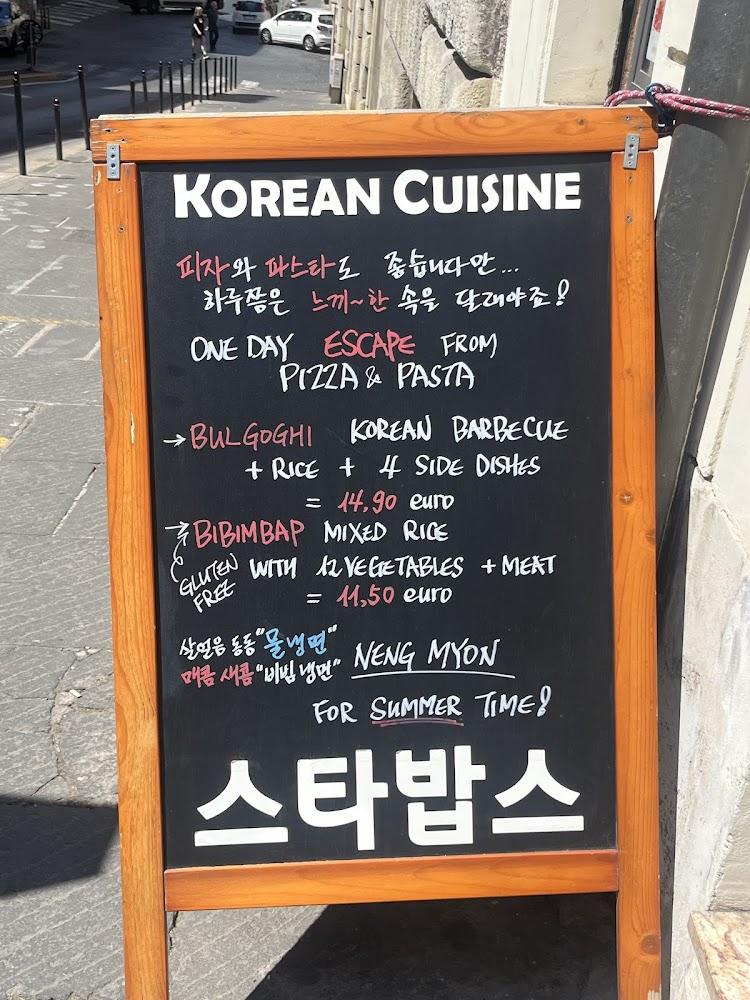 KOREAN CUISINE
피자와 파스타도 좋습니다만...
하루쯤은 느끼~한 속을 달래야죠!
ONE DAY ESCAPE FROM
PIZZA & PASTA
→BULGOGHI KOREAN BARBECUE
+ RICE + 4 SIDE DISHES
= 14,90 euro
→BIBIMBAP MIXED RICE
GLUTEN FREE
WITH 12 VEGETABLES + MEAT
= 11,50 euro
살얼음 동동 "물냉면"
매콤 새콤 "비빔냉면"
NENG MYON
FOR SUMMER TIME!
스타밥스